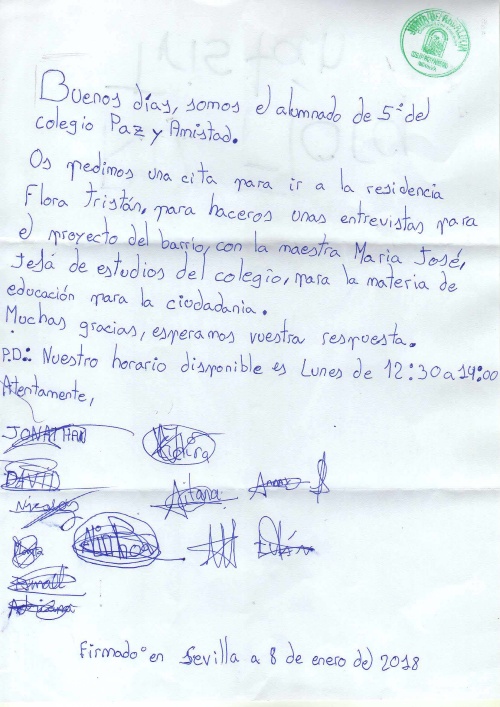 JUNTA DE ANDALUCIA
Buenos días, somos el alumnado de 5º del
colegio Paz y Amistad.
Os pedimos una cita para ir a la residencia
Flora Tristán, para haceros unas entrevistas para
el proyecto del barrio, con la maestra Maria José,
Jefá de estudios del colegio, para la materia de
educación para la ciudadania.
Muchas gracias, esperamos vuestra respuesta.
P.D.: Nuestro horario disponible es Lunes de 12:30 a 14:00
Atentamente,
JONATHAN
DAVID
Nicolas
Aitana
Ainhoa
Ismael
Adriana
Firmado en Sevilla a 8 de enero del 2018